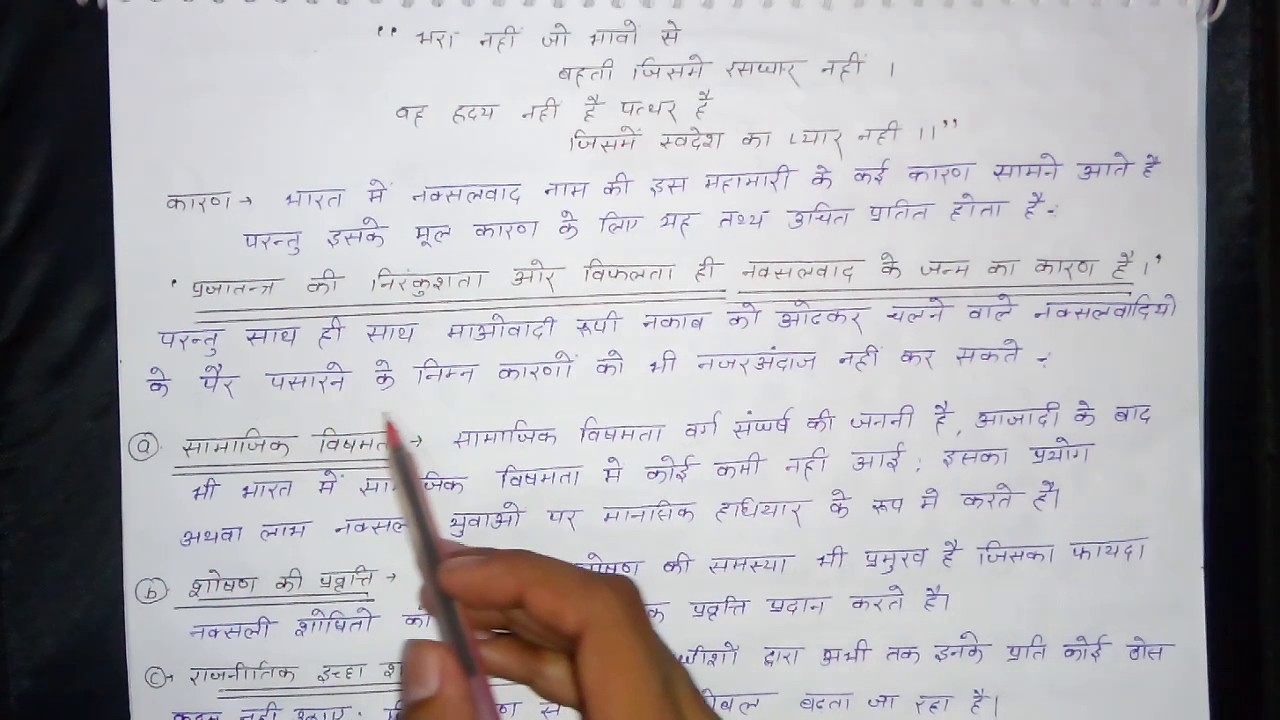 “ भरा नहीं जो भावो से
बहती जिसमे रसधार नहीं ।
वह ह्रदय नही है पत्थर है
जिसमें स्वदेश का प्यार नही ।।”
कारण → भारत में नक्सलवाद नाम की इस महामारी के कई कारण सामने आते है
परन्तु इसके मूल कारण के लिए यह तथ्य उचित प्रतित होता है :
' प्रजातन्त्र की निरंकुशता ओर विफलता ही नक्सलवाद के जन्म का कारण है ।'
परन्तु साथ ही साथ माओवादी रूपी नकाब को ओढकर चलने वाले नक्सलवादियो
के पैर पसारने के निम्न कारणों को भी नजरअंदाज नही कर सकते :
(a) सामाजिक → सामाजिक विषमता वर्ग संघर्ष की जननी है, आजादी के बाद
भी भारत में विषमता मे कोई कमी नही आई ; इसका प्रयोग
अथवा लाभ युवाओ पर मानसिक हथियार के रूप मे करते है।
(b) शोषण की प्रवृत्ति → की समस्या भी प्रमुख है जिसका फायदा
नक्सली शोषितो को प्रवृत्ति प्रदान करते है।
(c) → राजनीतिक इच्छा द्वारा अभी तक इनके प्रति कोई ठोस
बढता जा रहा है।